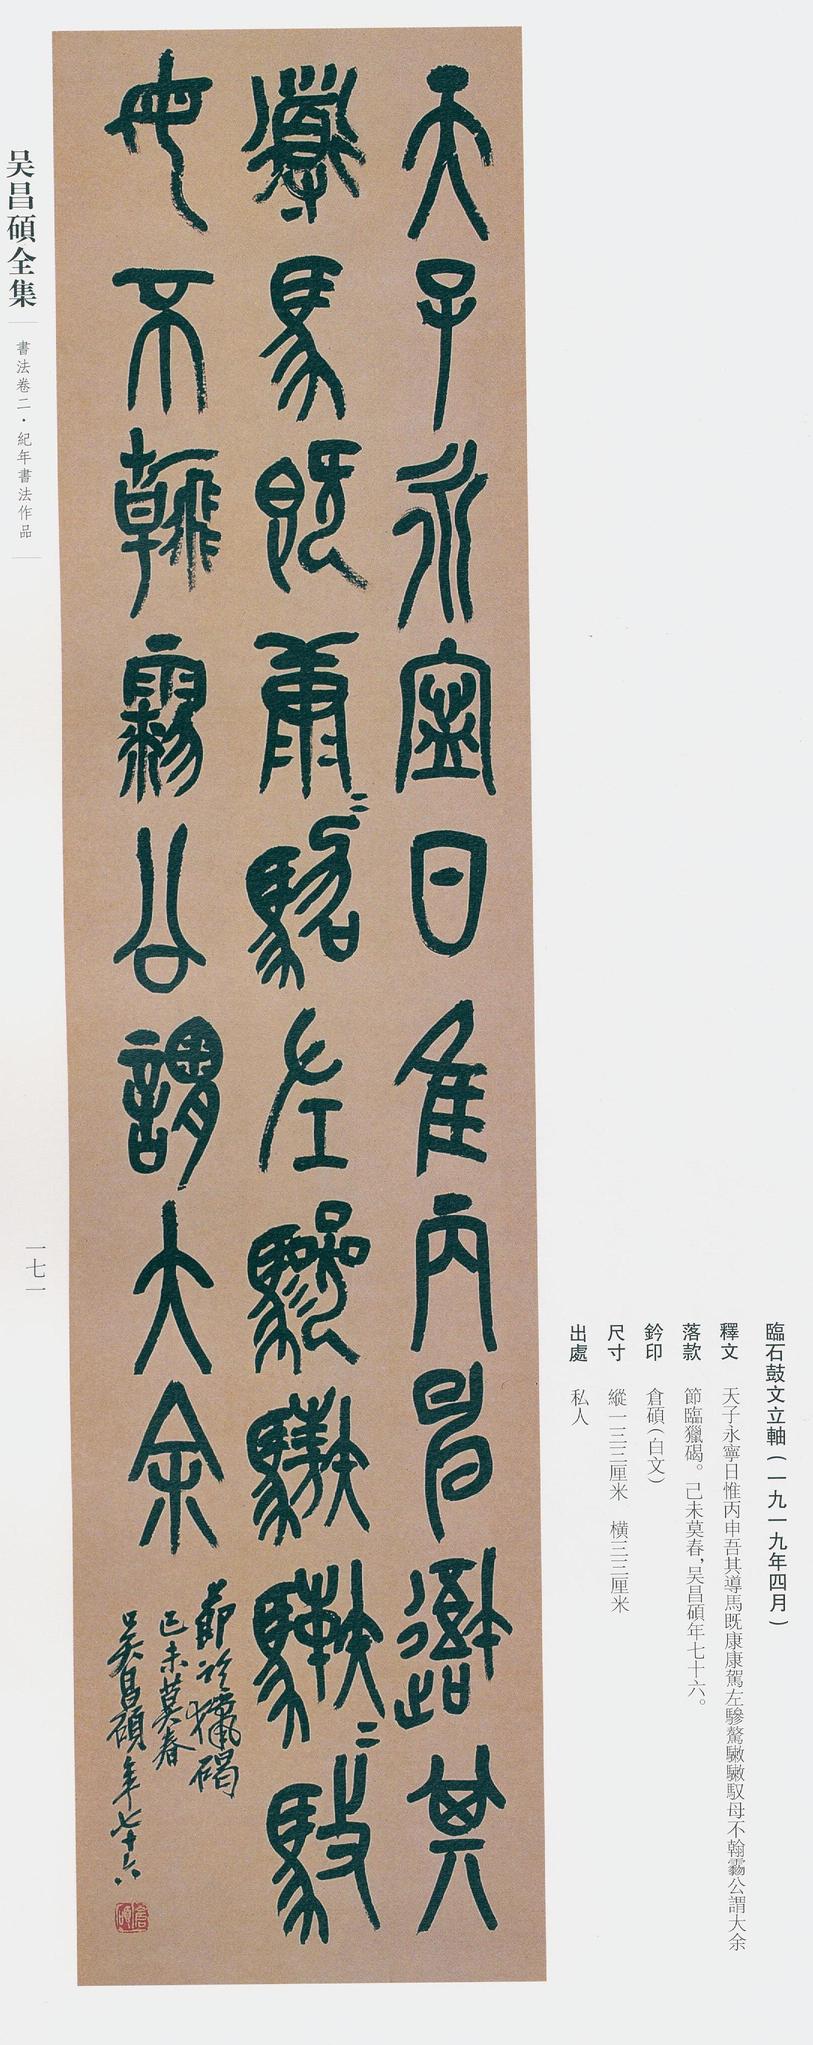 天子永寧日隹丙申𨗨其
導馬既康〻駕左驂驁𩦺〻馭
母不翰霧公謂大余
節臨獵碣
己未莫春
吴昌碩年七十六
倉碩
臨石鼓文立軸(一九一九年四月)
釋文 天子永寧日惟丙申吾其導馬既康康駕左驂驁𩦺𩦺馭母不翰霧公謂大余
落款 節臨獵碣。己未莫春,吴昌碩年七十六。
鈐印 倉碩(白文)
尺寸 縱一三三厘米 橫三三厘米
出處 私人
吴昌碩全集
書法卷二·紀年書法作品
一七一